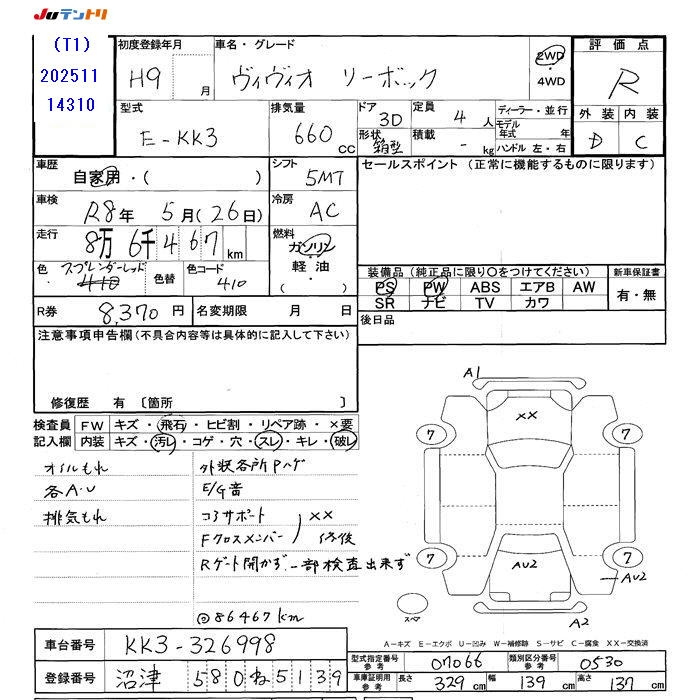 JUテントリ
(T1)
202511
14310
初度登録年月
H9 月
車名・グレード
ヴィヴィオ リーボック
2WD
・
4WD
評価点
R
外装 内装
D C
型式
E-KK3
排気量
660 cc
ドア
3D
形状
箱型
定員
4 人
積載
- kg
ディーラー・並行
モデル
年式 年
ハンドル 左・右
車歴
自家用・( )
シフト
5MT
セールスポイント (正常に機能するものに限ります)
車検
R8年 5月(26日)
冷房
AC
走行
8万6千467km
燃料
ガソリン
軽油
( )
色
スプレンダーレッド
410
色替
色コード
410
装備品(純正品に限り○をつけてください)
PS PW ABS エアB AW
SR ナビ TV カワ
新車保証書
有・無
R券
8,370 円
名変期限 月 日
後日品
注意事項申告欄(不具合内容等は具体的に記入して下さい)
修復歴 有 〔箇所 〕
検査員
記入欄
FW キズ・飛石・ヒビ割・リペア跡・×要
内装 キズ・汚レ・コゲ・穴・スレ・キレ・破レ
オイルもれ
各A・U
排気もれ
外装各所Pハゲ
E/G音
コアサポート
Fクロスメンバー
××
修復
Rゲート開かず、一部検査出来ず
◎86467km
A1
××
7
7
7
7
AU2
AU2
スペア
A2
A-キズ E-エクボ U-凹み W-補修跡 S-サビ C-腐食 XX-交換済
車台番号
KK3-326998
登録番号
沼津 580 ね 5139
型式指定番号
参考
07066
類別区分番号
参考
0530
車庫証明用
参考
長さ 329cm
幅 139cm
高さ 137cm